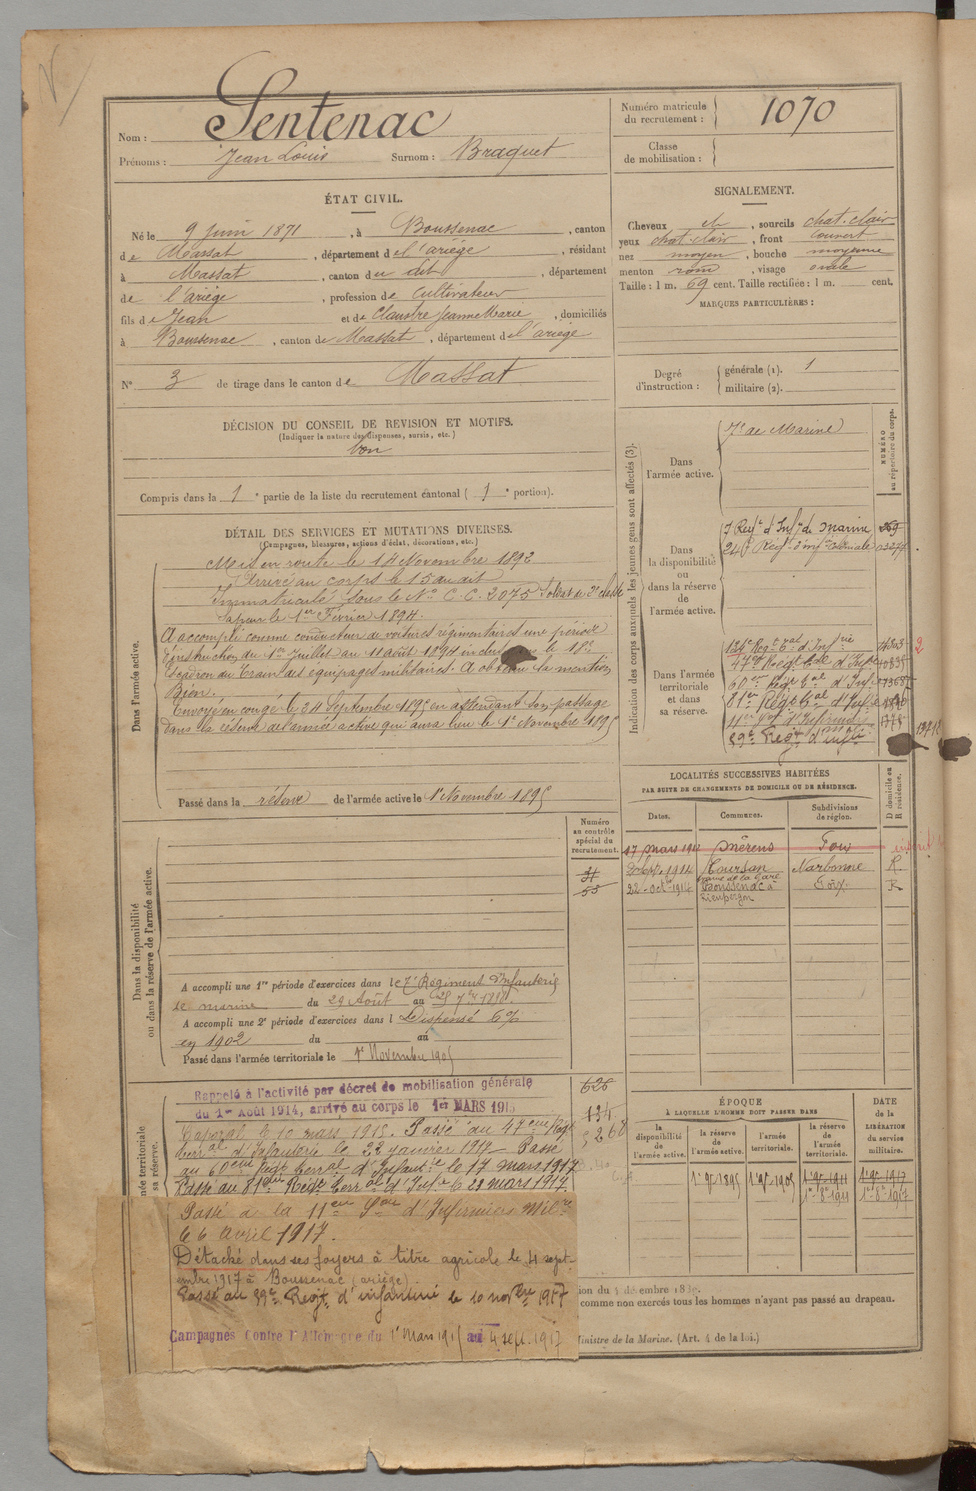 Nom : Sentenac
Prénoms : Jean Louis Surnom : Braquet
Numéro matricule du recrutement : 1070
Classe de mobilisation :
ÉTAT CIVIL.
Né le 9 juin 1871, à Boussenac, canton
de Massat, département de l'ariège, résidant
à Massat, canton du dit, département
de l'ariège, profession de cultivateur
fils de Jean et de Claustre Jeanne Marie, domiciliés
à Boussenac, canton de Massat, département de l'ariège
N° 3 de tirage dans le canton de Massat
SIGNALEMENT.
Cheveux ch, sourcils chat. clair
yeux chat. clair, front couvert
nez moyen, bouche moyenne
menton rond, visage ovale
Taille : 1 m. 69 cent. Taille rectifiée : 1 m. cent.
MARQUES PARTICULIÈRES :
Degré d'instruction : générale (1). 1
militaire (2).
DÉCISION DU CONSEIL DE REVISION ET MOTIFS.
(Indiquer la nature des dispenses, sursis, etc.)
bon
Compris dans la 1e partie de la liste du recrutement cantonal (1e portion).
DÉTAIL DES SERVICES ET MUTATIONS DIVERSES.
(Campagnes, blessures, actions d'éclat, décorations, etc.)
Dans l'armée active.
Mis en route le 14 Novembre 1892
Arrivé au corps le 15 du dit
Immatriculé sous le N° C.C. 2075 Soldat de 2e classe
Sapeur le 1er Février 1894.
A accompli comme conducteur de voitures régimentaires une période
d'instruction du 1er Juillet au 11 août 1894 inclus le 18e
Escadron du Train des équipages militaires. A obtenu la mention
Bien.
Envoyé en congé le 24 Septembre 1895 en attendant son passage
dans la réserve de l'armée active qui aura lieu le 1er Novembre 1895
Passé dans la réserve de l'armée active le 1er Novembre 1895
Indication des corps auxquels les jeunes gens sont affectés (3).
NUMÉRO au répertoire du corps.
Dans l'armée active.
7e de Marine
Dans la disponibilité ou dans la réserve de l'armée active.
7 Regt d'Infie de Marine 269
24e Regt d'infie Coloniale
Dans l'armée territoriale et dans sa réserve.
134e Regt Tal d'Infrie
47me Regt Tal d'Infie
60me Regt Tal d'Infie
81me Regt Tal d'Infie
11me Son d'Infirmiers 1778
89e Regt d'infie
LOCALITÉS SUCCESSIVES HABITÉES
PAR SUITE DE CHANGEMENTS DE DOMICILE OU DE RÉSIDENCE.
Dates. Communes. Subdivisions de région. D domicile ou R résidence.
17 mars 1911 Mérens Foix
1914 Coursan Narbonne R.
22 octbre 1914 Boussenac à Foix R
Numéro au contrôle spécial du recrutement.
31
55
Dans la disponibilité ou dans la réserve de l'armée active.
A accompli une 1re période d'exercices dans le 7e Régiment d'Infanterie
de marine du 29 Août au 25 7bre 1898
A accompli une 2e période d'exercices dans l Dispensé 6%
en 1902 du au
Passé dans l'armée territoriale le 1er Novembre 1905
626
134
Rappelé à l'activité par décret de mobilisation générale
du 1er Août 1914, arrivé au corps le 1er MARS 1915
Caporal le 10 mars 1915. Passé au 47eme Regt
terral d'Infanterie le 22 janvier 1917. Passé
au 60eme Regt terral d'Infantie le 17 mars 1917
Passé au 81eme Regt Terral d'Infie le 23 mars 1917
Passé à la 11eme Son d'Infirmiers Milres
le 6 avril 1917.
Détaché dans ses foyers à titre agricole le 4 sept
embre 1917 à Boussenac (ariège).
Passé au 89e Regt d'infanterie le 10 novbre 1917
Campagnes contre l'Allemagne du 1er Mars 1915 au 4 sept. 1917
ÉPOQUE
À LAQUELLE L'HOMME DOIT PASSER DANS
la disponibilité de l'armée active. la réserve de l'armée active. l'armée territoriale. la réserve de l'armée territoriale.
DATE de la LIBÉRATION du service militaire.
1er 9bre 1895 1er 9bre 1905 1er 9bre 1911 1er 9bre 1917
1er 8bre 1911 1er 8bre 1917
comme non exercés tous les hommes n'ayant pas passé au drapeau.
Ministre de la Marine. (Art. 4 de la loi.)